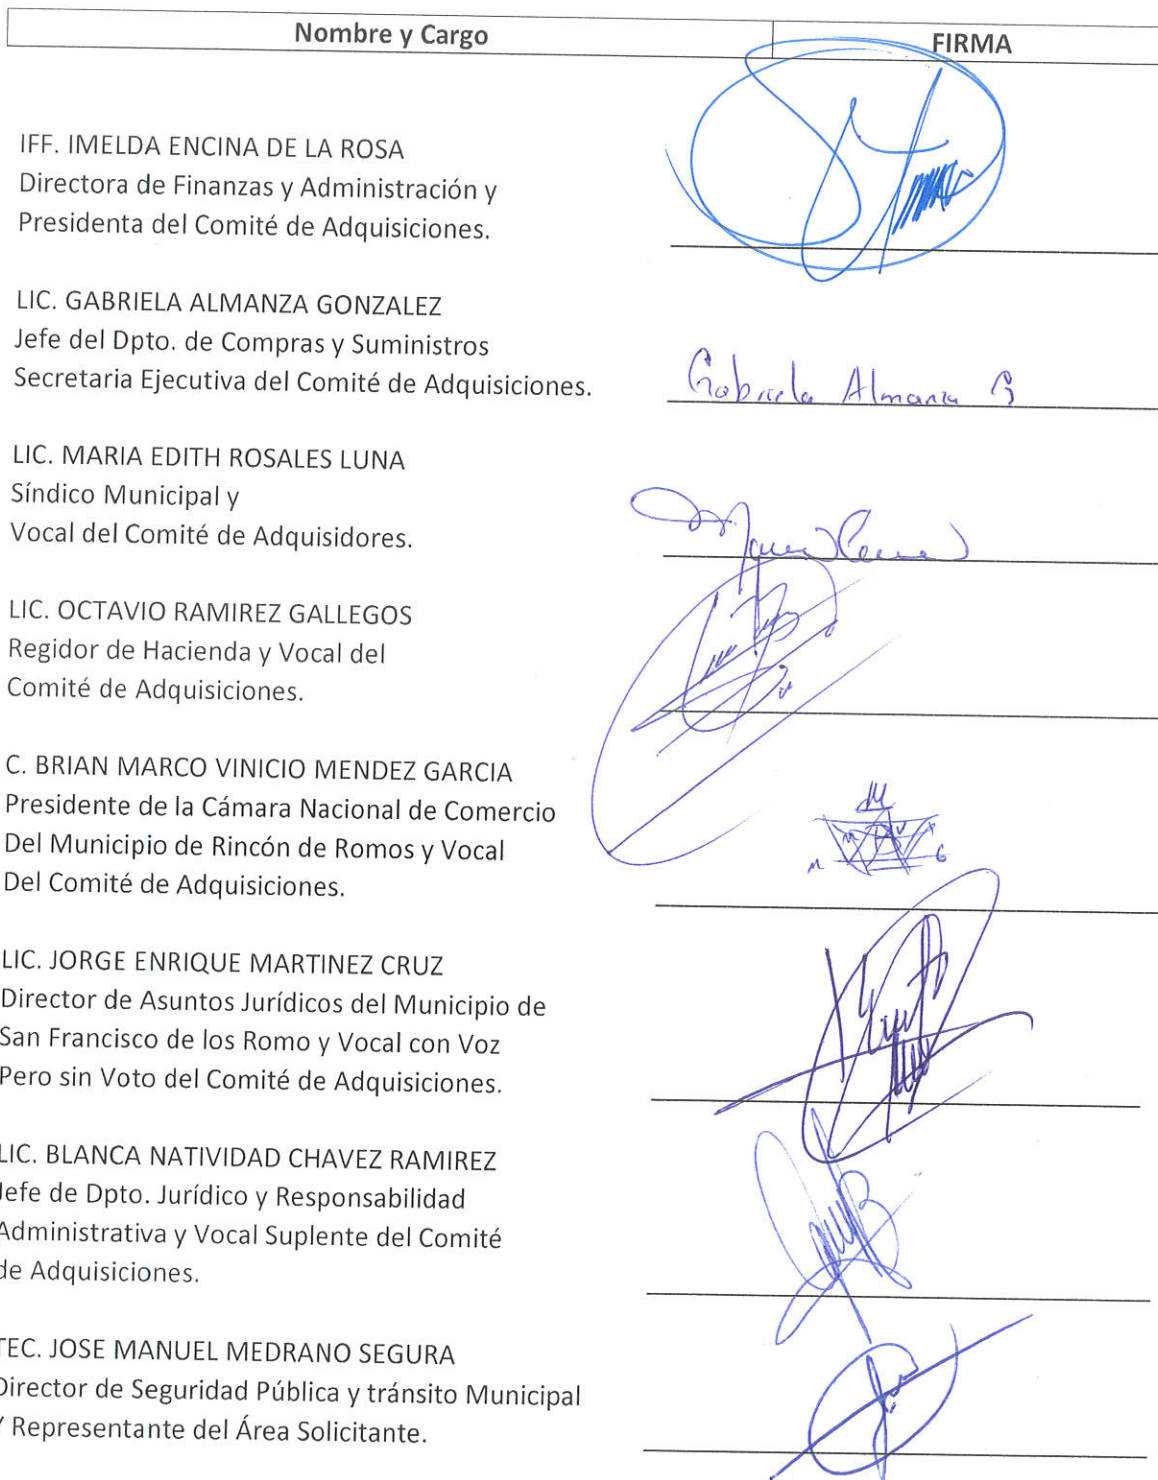 Nombre y Cargo FIRMA
IFF. IMELDA ENCINA DE LA ROSA
Directora de Finanzas y Administración y
Presidenta del Comité de Adquisiciones.
LIC. GABRIELA ALMANZA GONZALEZ
Jefe del Dpto. de Compras y Suministros
Secretaria Ejecutiva del Comité de Adquisiciones.
Gabriela Almanza G
LIC. MARIA EDITH ROSALES LUNA
Síndico Municipal y
Vocal del Comité de Adquisidores.
LIC. OCTAVIO RAMIREZ GALLEGOS
Regidor de Hacienda y Vocal del
Comité de Adquisiciones.
C. BRIAN MARCO VINICIO MENDEZ GARCIA
Presidente de la Cámara Nacional de Comercio
Del Municipio de Rincón de Romos y Vocal
Del Comité de Adquisiciones.
LIC. JORGE ENRIQUE MARTINEZ CRUZ
Director de Asuntos Jurídicos del Municipio de
San Francisco de los Romo y Vocal con Voz
Pero sin Voto del Comité de Adquisiciones.
LIC. BLANCA NATIVIDAD CHAVEZ RAMIREZ
Jefe de Dpto. Jurídico y Responsabilidad
Administrativa y Vocal Suplente del Comité
de Adquisiciones.
TEC. JOSE MANUEL MEDRANO SEGURA
Director de Seguridad Pública y tránsito Municipal
Y Representante del Área Solicitante.